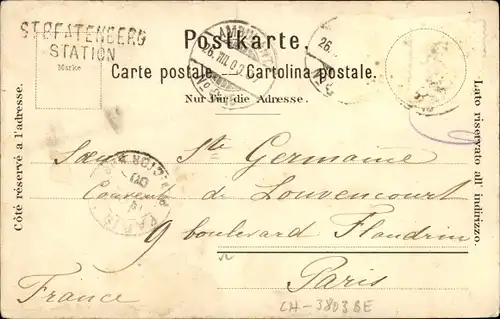 STRFATENBERG
STATION
Marke
Postkarte.
AMBULANT
26. VIII. 02
26.
Carte postale. — Cartolina postale.
Nur für die Adresse.
Côté réservé à l'adresse.
Lato riservato all' indirizzo.
Soeur Ste Germaine
Couvent de Louvencourt
9 boulevard Flandrin
Paris
France
PARIS
CH-3803BE